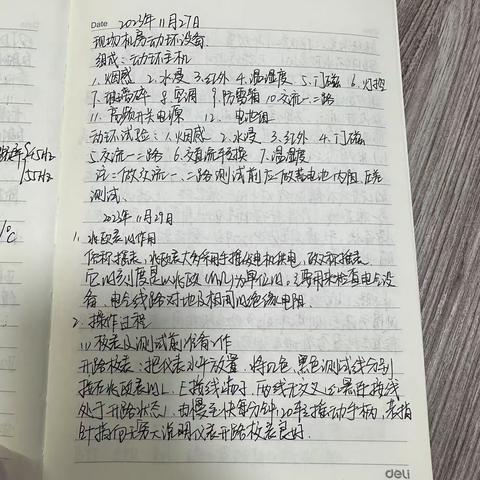 Date 2023年11月27日
现场机房动环设备.
组成:动环主机
1.烟感 2.水浸 3.红外 4.温湿度 5.门磁 6.灯控
7.玻璃碎 8.空调 9.防雷箱 10.交流一二路
11.高频开关电源 12.电池组
动环试验:1.烟感 2.水浸 3.红外 4.门磁
5.交流一二路 6.交直流转换 7.温湿度
注:做交流一、二路测试前应做蓄电池内阻,压差
测试.
2023年11月29日
1.兆欧表的作用
俗称摇表,兆欧表大多采用手摇发电机供电,故称摇表
它的刻度是以兆欧(MΩ)为单位的,主要用来检查电气设
备、电气线路对地及相间的绝缘电阻.
2.操作过程
(1)校表以测试前准备工作
开路校表:把仪表水平放置,将红色,黑色测试线分别
接在兆欧表的L、E接线端时,两线无交叉
处于开路状态,由慢至快每分钟120转摇动手柄,表指
针指向无穷大说明仪表开路校表良好.
45HZ
55HZ
℃
deli